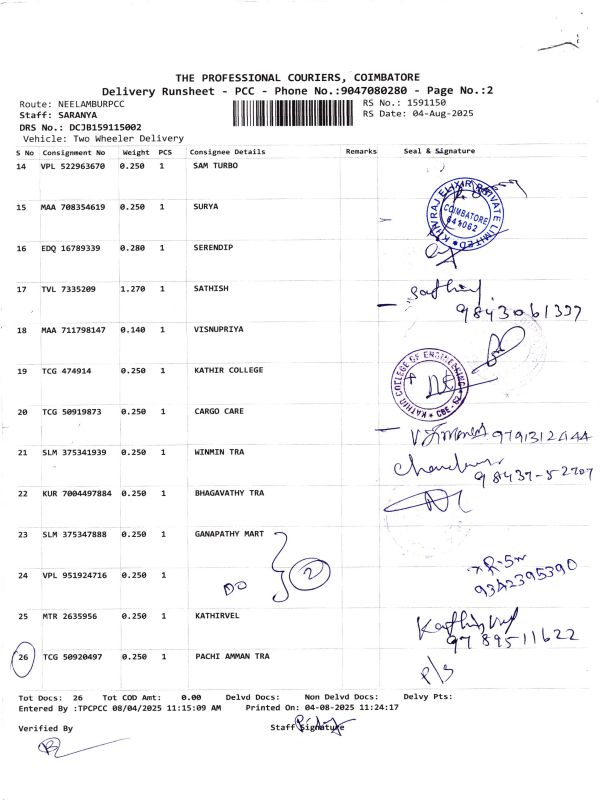 THE PROFESSIONAL COURIERS, COIMBATORE
Delivery Runsheet - PCC - Phone No.:9047080280 - Page No.:2
Route: NEELAMBURPCC RS No.: 1591150
Staff: SARANYA RS Date: 04-Aug-2025
DRS No.: DCJB159115002
Vehicle: Two Wheeler Delivery
S No Consignment No Weight PCS Consignee Details Remarks Seal & Signature
14 VPL 522963670 0.250 1 SAM TURBO
15 MAA 708354619 0.250 1 SURYA
COIMBATORE
641062
16 EDQ 16789339 0.280 1 SERENDIP
17 TVL 7335209 1.270 1 SATHISH
9843061337
18 MAA 711798147 0.140 1 VISNUPRIYA
19 TCG 474914 0.250 1 KATHIR COLLEGE
KATHIR COLLEGE OF ENGINEERING
CBE - 62
20 TCG 50919873 0.250 1 CARGO CARE
21 SLM 375341939 0.250 1 WINMIN TRA
98437-52707
22 KUR 7004497884 0.250 1 BHAGAVATHY TRA
23 SLM 375347888 0.250 1 GANAPATHY MART
24 VPL 951924716 0.250 1
DO 2
9342395390
25 MTR 2635956 0.250 1 KATHIRVEL
9789511622
26 TCG 50920497 0.250 1 PACHI AMMAN TRA
P/S
Tot Docs: 26 Tot COD Amt: 0.00 Delvd Docs: Non Delvd Docs: Delvy Pts:
Entered By :TPCPCC 08/04/2025 11:15:09 AM Printed On: 04-08-2025 11:24:17
Verified By Staff Signature